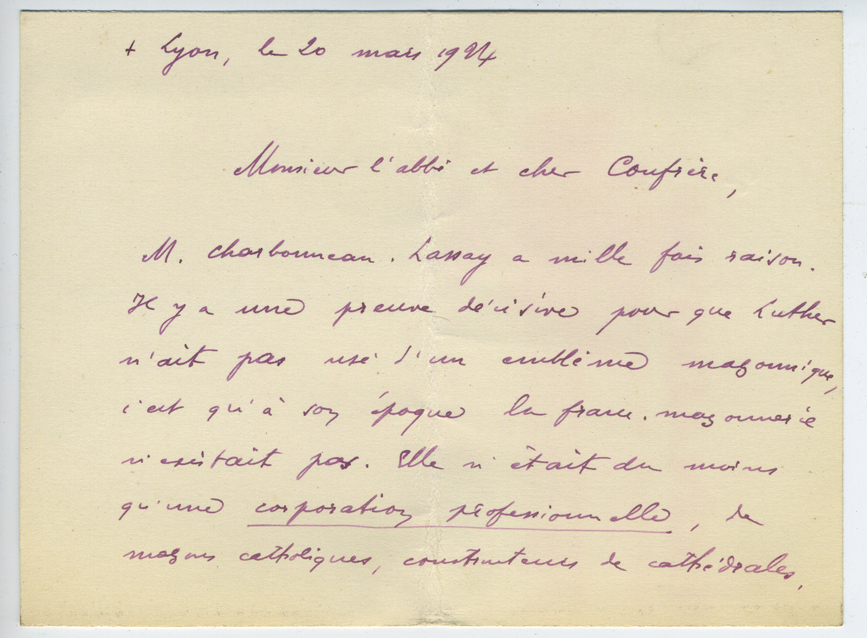 + Lyon, le 20 mars 1924
Monsieur l'abbé et cher Confrère,
M. Charbonneau-Lassay a mille fois raison.
Il y a une preuve décisive pour que Luther
n'ait pas usé d'un emblème maçonnique,
c'est qu'à son époque la franc-maçonnerie
n'existait pas. Elle n'était du moins
qu'une corporation professionnelle, de
maçons catholiques, constructeurs de cathédrales,